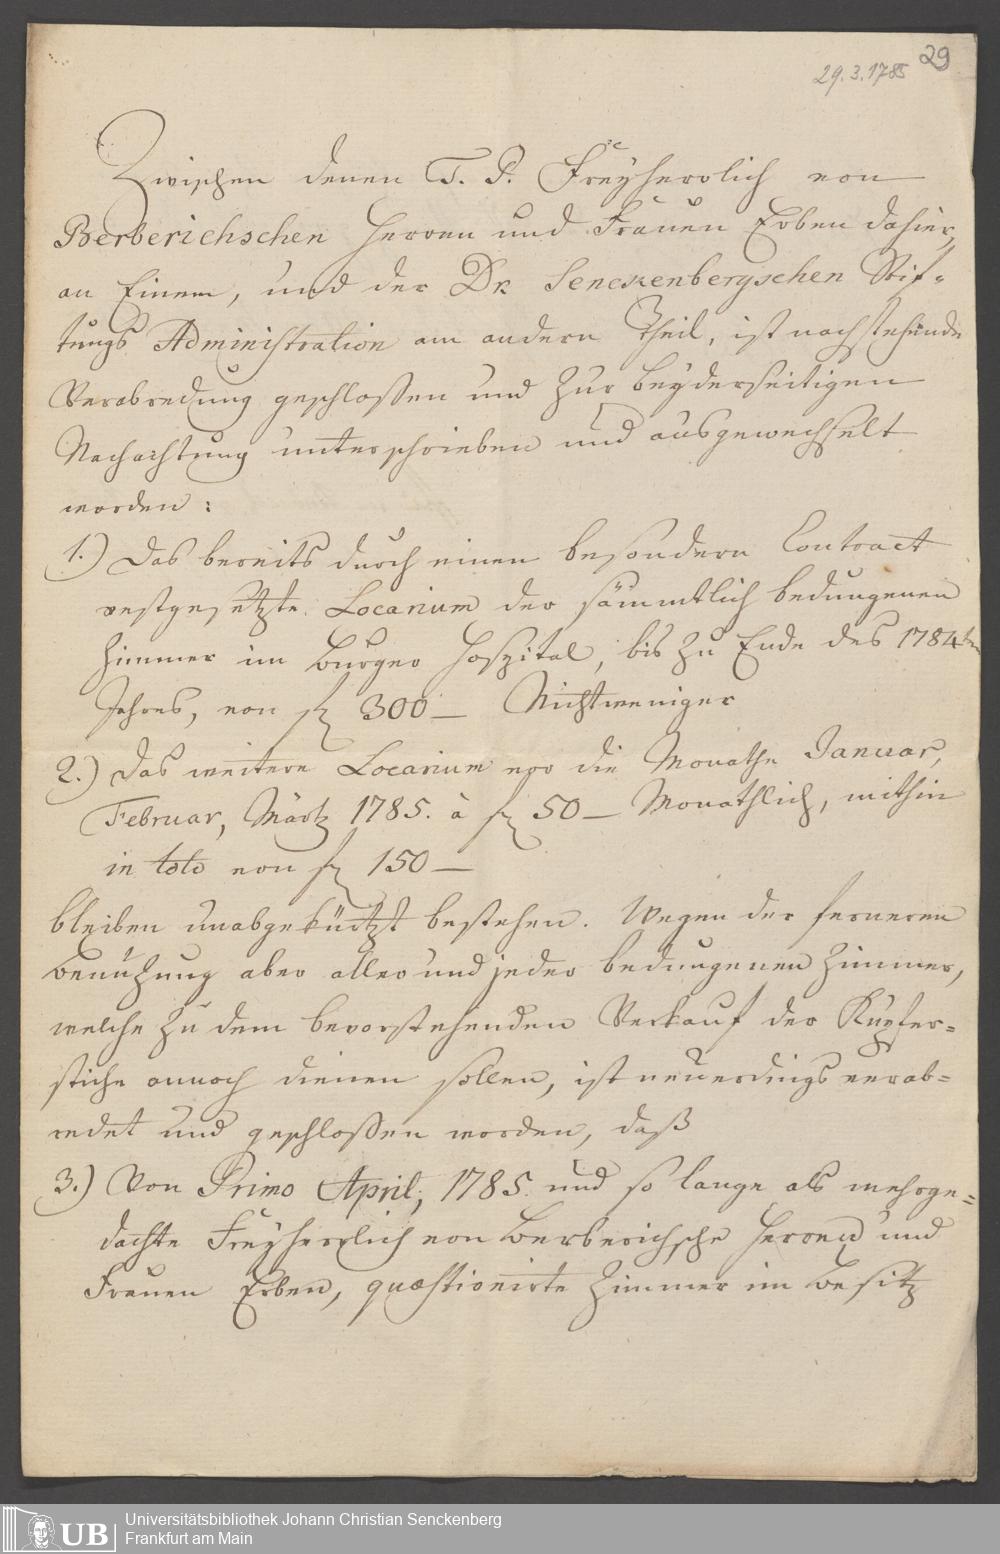 29
29.3.1785
Zwischen denen T. P. Freyherrlich von
Berberichschen Herren und Frauen Erben dahier,
an Einem, und der Dr. Senckenbergschen Stif-
tungs Administration am andern Theil, ist nachstehende
Verabredung geschlossen und zur beyderseitigen
Nachachtung unterschrieben und ausgewechselt
worden:
1.) Das bereits durch einen besondern Contract
vestgesetzte Locarium der sämmtlich bedungenen
Zimmer im Burger Hospital, bis zu Ende des 1784ten
Jahres, von f 300 — Nichtweniger
2.) Das weitere Locarium vor die Monathe Januar,
Februar, Märtz 1785. à f 50 — Monathlich, mithin
in toto von f 150 —
bleiben unabgekürtzt bestehen. Wegen der ferneren
Benutzung aber aller und jeder bedungenen Zimmer,
welche zu dem bevorstehenden Verkauf der Kupfer-
stiche annoch dienen sollen, ist neuerdings verab-
redet und geschlossen worden, daß
3.) Von Primo April, 1785. und so lange als mehrge-
dachte Freyherrlich von Berberichsche Herren und
Frauen Erben, quæstionirte Zimmer im Besitz
UB
Universitätsbibliothek Johann Christian Senckenberg
Frankfurt am Main